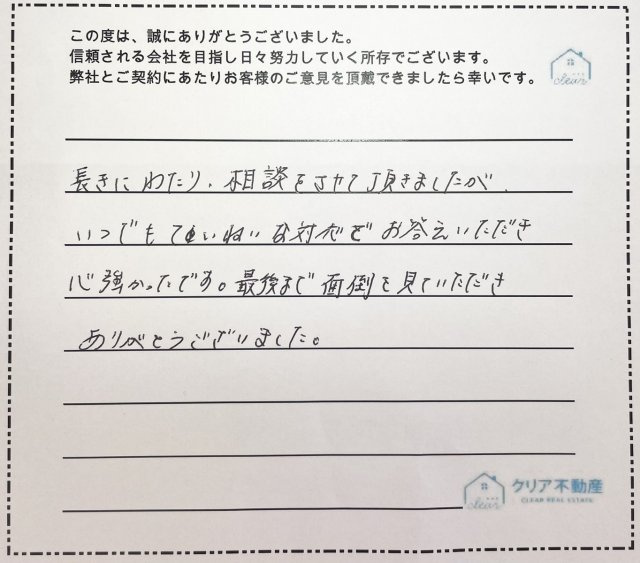 この度は、誠にありがとうございました。
信頼される会社を目指し日々努力していく所存でございます。
弊社とご契約にあたりお客様のご意見を頂戴できましたら幸いです。
clear
長きにわたり、相談をさせて頂きましたが、
いつでもていねいな対応でお答えいただき
心強かったです。最後まで面倒を見ていただき
ありがとうございました。
clear
クリア不動産
CLEAR REAL ESTATE